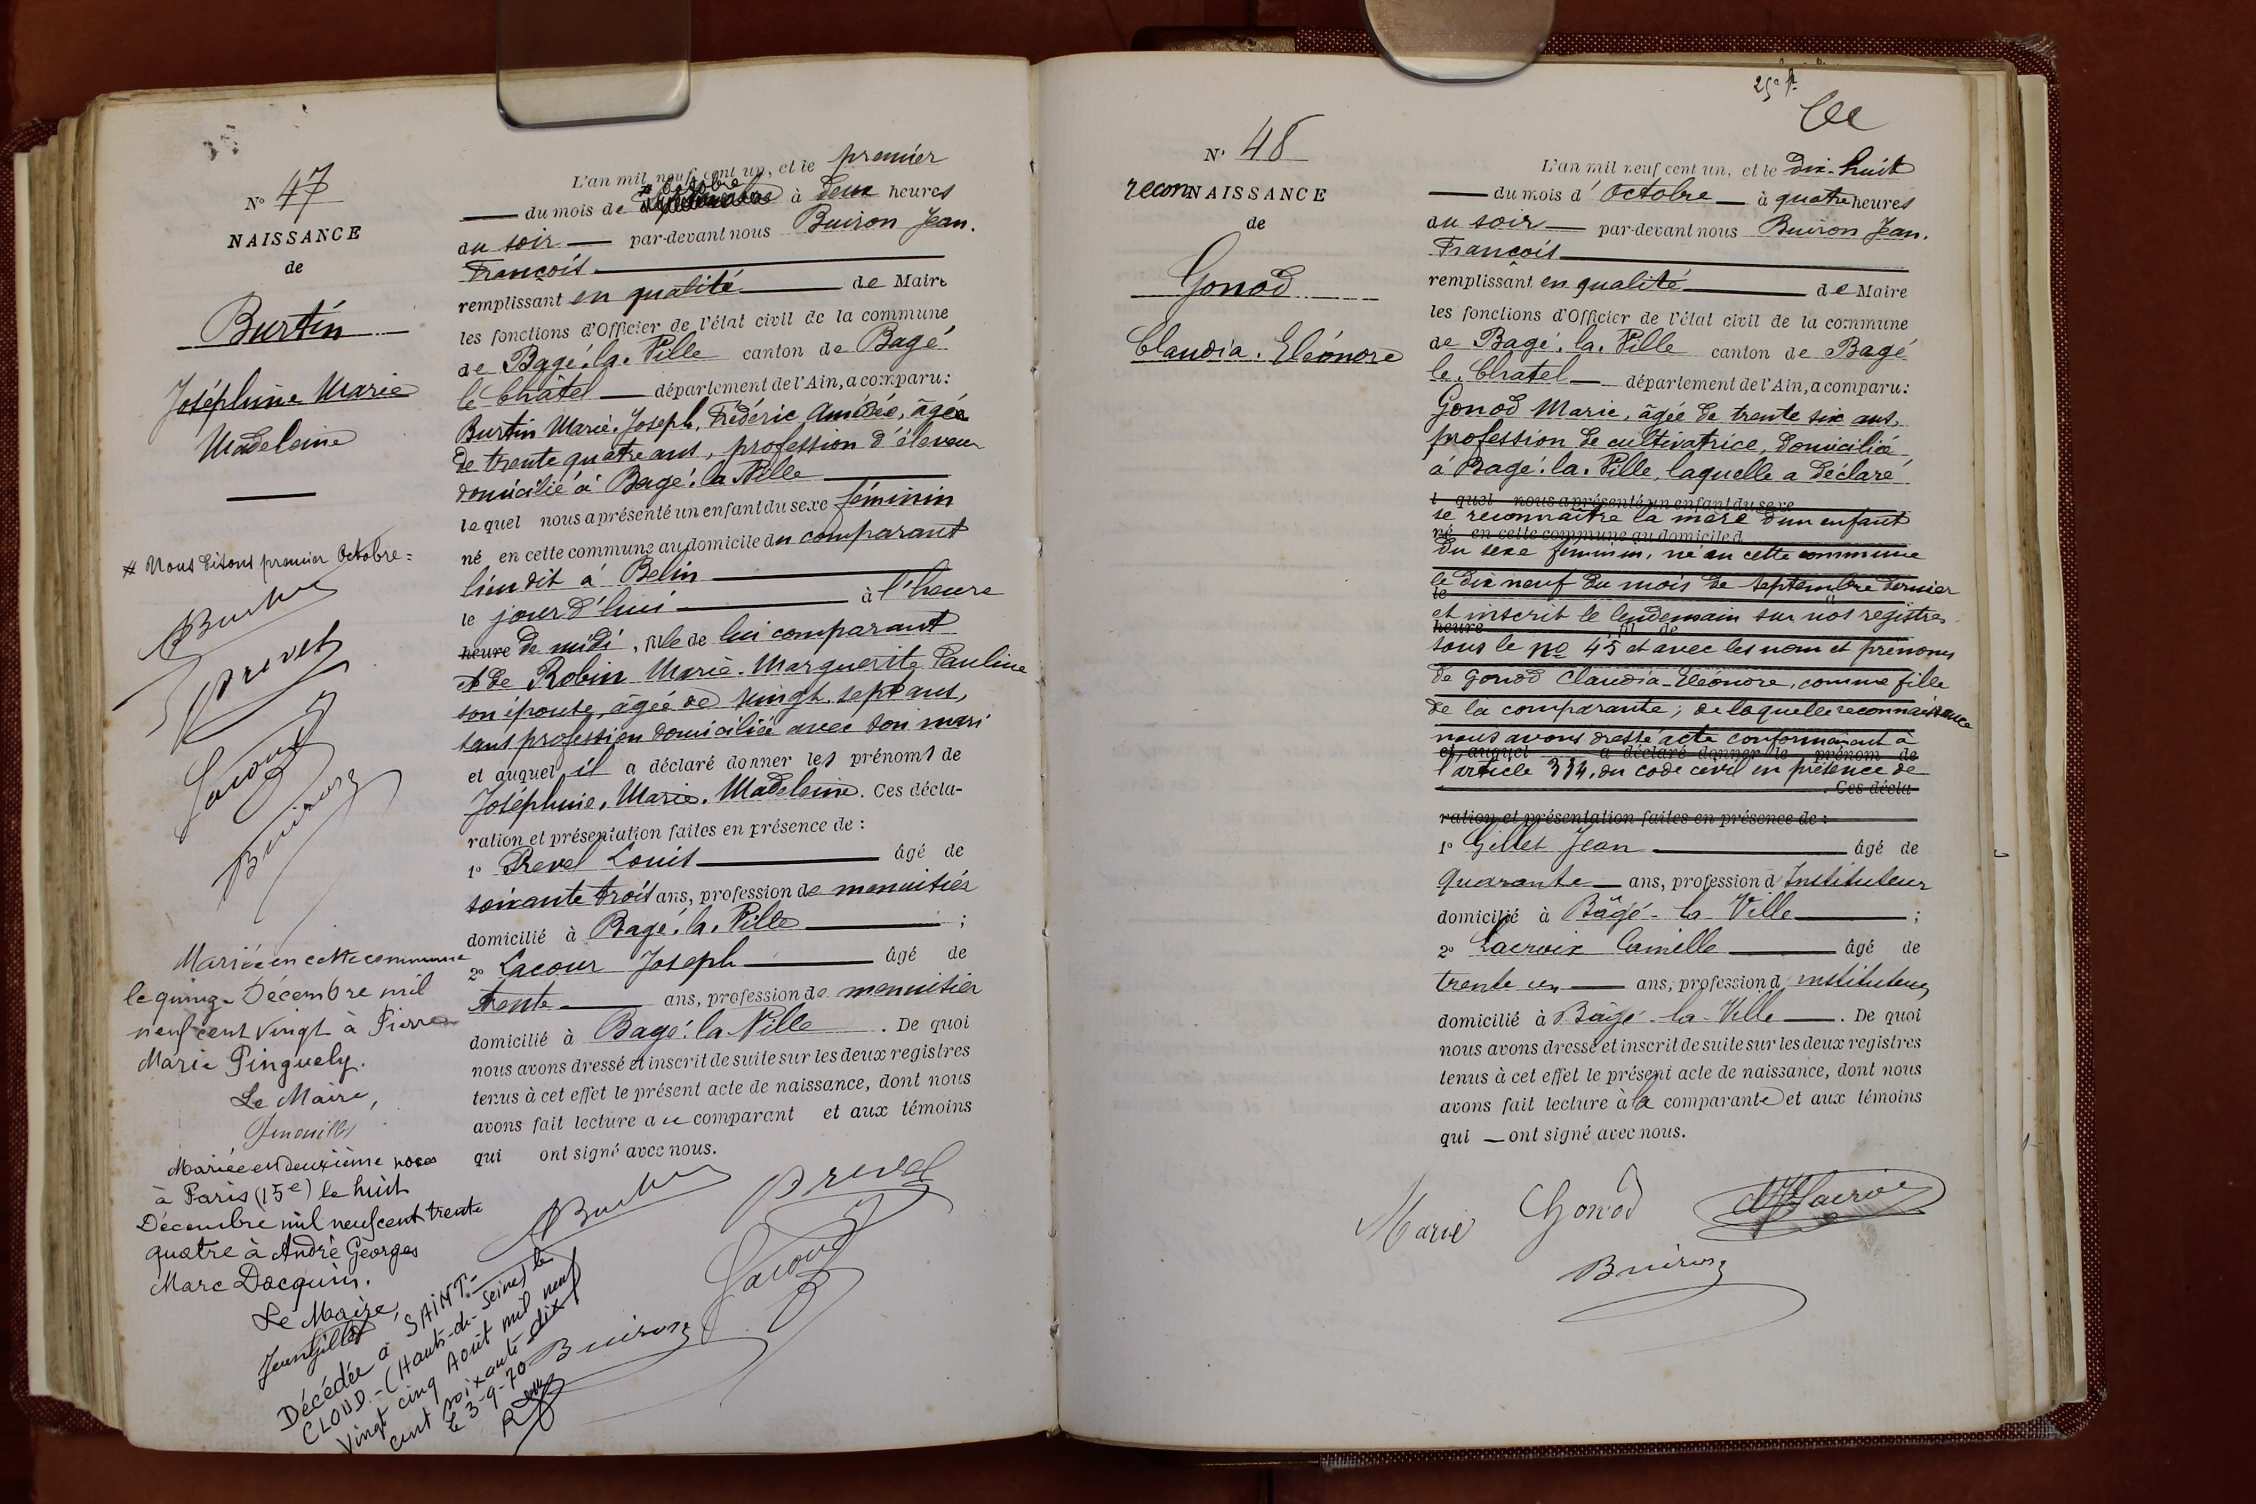 N° 47
NAISSANCE
de
Burtin
Joséphine Marie
Madeleine
# Nous disons premier Octobre =
Prevel
Lacour
Buiron
Mariée en cette commune
le quinze Décembre mil
neuf cent vingt à Pierre
Marie Pinguely.
Le Maire,
Mariée en deuxième noces
à Paris (15e) le huit
Décembre mil neuf cent trente
quatre à André Georges
Marc Dacquin.
Le Maire,
Jean Gillet
Décédée à SAINT-
CLOUD - (Hauts-de-Seine) le
vingt cinq Août mil neuf
cent soixante-dix
le 3-9-70
L'an mil neuf cent un, et le premier
# Octobre
du mois de à deux heures
du soir — par-devant nous Buiron Jean.
François
remplissant en qualité de Maire
les fonctions d'Officier de l'état civil de la commune
de Bagé. la. Ville canton de Bagé
le Châtel — département de l'Ain, a comparu :
Burtin Marie. Joseph, Frédéric Amédée, âgée
de trente quatre ans, profession d'éleveur
domicilié à Bagé. la Ville
lequel nous a présenté un enfant du sexe féminin
né en cette commune au domicile du comparant
lieu dit à Belin
le jour d'hui à l'heure
heure de midi, fille de lui comparant
et de Robin Marie. Marguerite Pauline
son épouse, âgée de vingt. sept ans,
sans profession domiciliée avec son mari
et auquel il a déclaré donner les prénoms de
Joséphine, Marie, Madeleine. Ces décla-
ration et présentation faites en présence de :
1° Prevel Louis âgé de
soixante trois ans, profession de menuisier
domicilié à Bagé. la. Ville ;
2° Lacour Joseph âgé de
trente ans, profession de menuisier
domicilié à Bagé. la Ville . De quoi
nous avons dressé et inscrit de suite sur les deux registres
tenus à cet effet le présent acte de naissance, dont nous
avons fait lecture au comparant et aux témoins
qui ont signé avec nous.
Prevel
Lacour
Buiron
25e f.
N° 48
reconNAISSANCE
de
Gonod
Claudia. Eléonore
L'an mil neuf cent un, et le dix-huit
— du mois d'Octobre — à quatre heures
du soir — par-devant nous Buiron Jean.
François
remplissant en qualité de Maire
les fonctions d'Officier de l'état civil de la commune
de Bagé. la. Ville canton de Bagé
le. Chatel — département de l'Ain, a comparu :
Gonod Marie, âgée de trente six ans,
profession de cultivatrice, domiciliée
à Bagé. la. Ville, laquelle a déclaré
l quel nous a présenté un enfant du sexe
se reconnaître la mère d'un enfant
né en cette commune au domicile d
du sexe féminin, né en cette commune
le dix neuf du mois de septembre dernier
le
et inscrit le lendemain sur nos registres
heure fil de
sous le no 45 et avec les nom et prénoms
de Gonod Claudia-Eléonore, comme fille
de la comparante ; de laquelle reconnaissance
nous avons dressé acte conformément à
et auquel a déclaré donner le prénom de
l'article 334, du code civil en présence de
. Ces décla-
ration et présentation faites en présence de :
1° Gillet Jean âgé de
Quarante — ans, profession d'Instituteur
domicilié à Bâgé-la-Ville ;
2° Lacroix Camille âgé de
trente un — ans, profession d'instituteur
domicilié à Bâgé-la-Ville — . De quoi
nous avons dressé et inscrit de suite sur les deux registres
tenus à cet effet le présent acte de naissance, dont nous
avons fait lecture à la comparante et aux témoins
qui — ont signé avec nous.
Marie Gonod Lacroix
Buiron